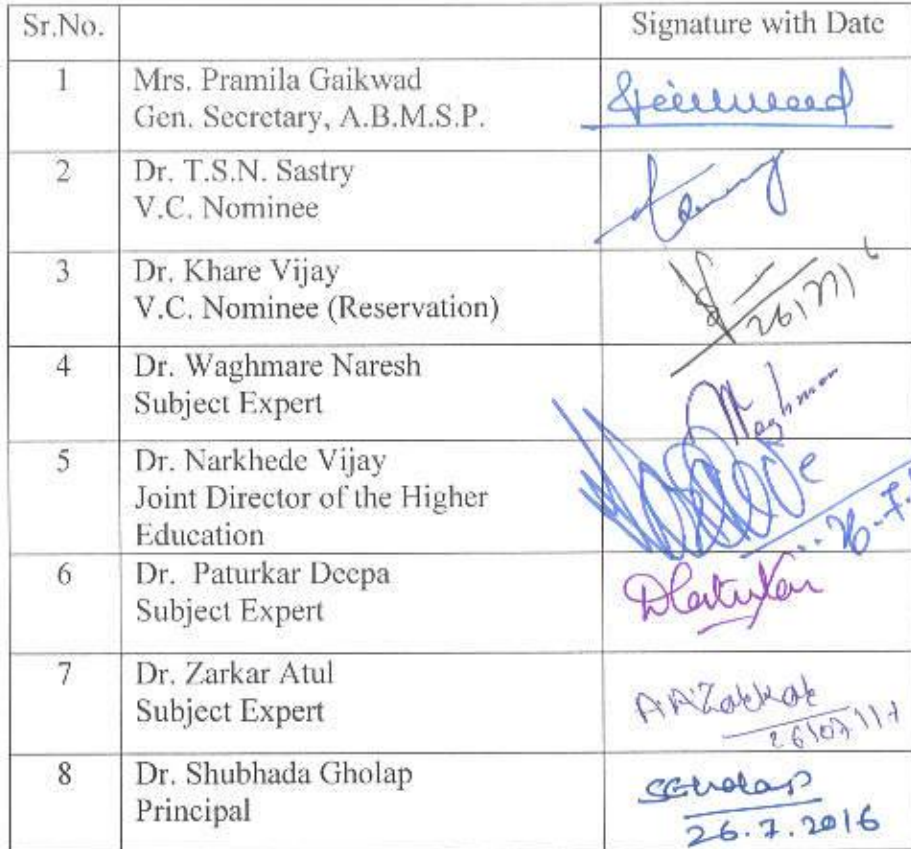 Sr.No. Signature with Date
1 Mrs. Pramila Gaikwad
Gen. Secretary, A.B.M.S.P.
2 Dr. T.S.N. Sastry
V.C. Nominee
3 Dr. Khare Vijay
V.C. Nominee (Reservation)
4 Dr. Waghmare Naresh
Subject Expert
5 Dr. Narkhede Vijay
Joint Director of the Higher
Education
6 Dr. Paturkar Deepa
Subject Expert
7 Dr. Zarkar Atul
Subject Expert
AAZarkar
8 Dr. Shubhada Gholap
Principal
SGholap
26.7.2016